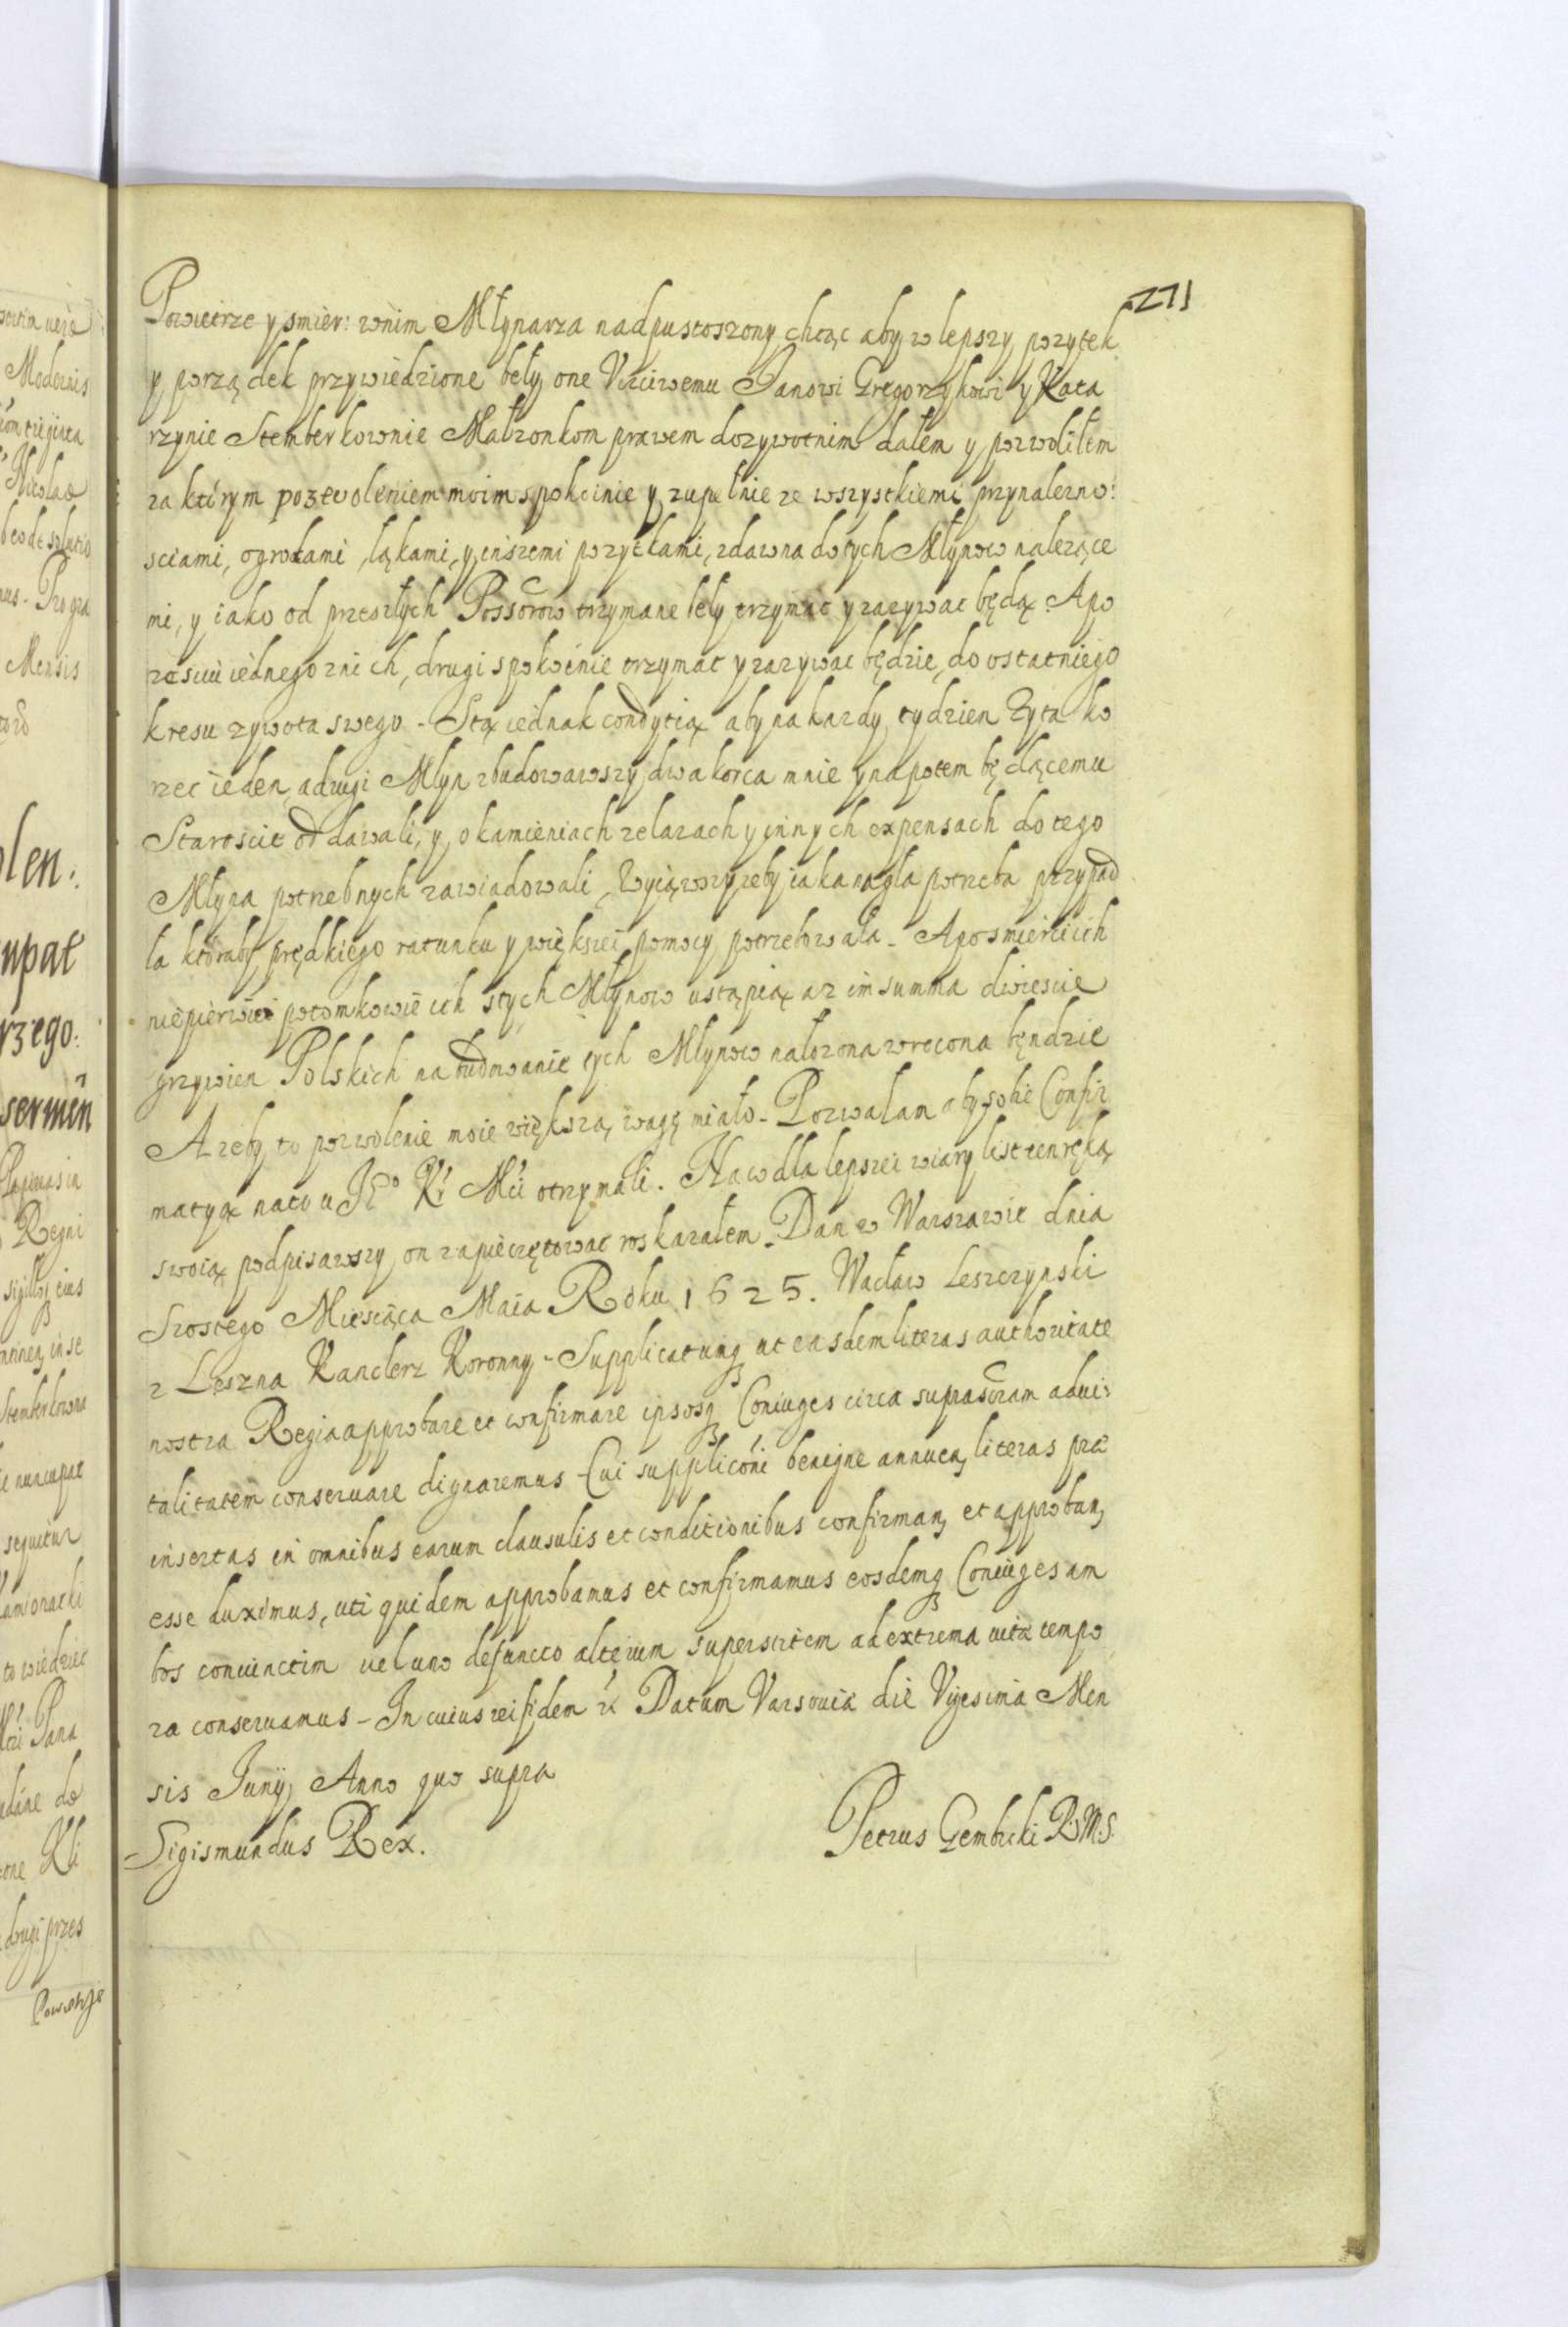 271
Powietrze y smier: wnim Młynarza nadpustoszony chcąc aby w lepszy pozytek
y porządek przywiedzione beły one Vcciwemu Janowi Gregorzykowi y Kata
rzynie Stemberkownie Małzonkom prawem dozywotnim dałem y pozwoliłem
za którym pozwoleniem moim spokoinie y zupełnie ze wszystkiemi przynalezno:
sciami, ogrodami, łąkami, y inszemi pozytkami, zdawna do tych Młynow nalezące
mi, y iako od przeszłych Possorow trzymane beły trzymac y zazywac będą. A po
zesciu iednego z nich, drugi spokoinie trzymac y zazywac będzie, do ostatniego
kresu zywota swego - Stą iednak condytią aby na kazdy tydzien Zyta ko
rzec ieden, a drugi Młyn zbudowawszy dwa korca mnie y napotem będącemu
Staroscie oddawali, y o kamieniach zelazach y innych expensach do tego
Młyna potrzebnych zawiadowali, Wyiąwszy zeby iaka nagła potrzeba przypad
ła ktoraby prędkiego ratunku y większei pomocy potrzebowała - A po smierci ich
niepierwiei potomkowie ich s tych Młynow ustąpią az im summa dwiescie
grzywien Polskich na budowanie tych Młynow nałozona wrocona bęndzie
A zeby to pozwolenie moie większą wagę miało - Pozwalam aby sobie Confir
matyą na to u Je͞o Kr Mci otrzymali. Na co dla lepszei wiary list ten ręką
swoią podpisawszy on zapieczętowac roskazałem - Dan w Warszawie dnia
Szostego Miesiąca Maia Roku 1625. Wacław Leszczynski
z Leszna Kanclerz Koronny - Supplicatumq ut easdem literas authoritate
nostra Regia approbare et confirmare ipsosq Coniuges circa suprascram advi:
talitatem conseruare dignaremus - Cui suppliconi benigne annuen, literas præ
insertas in omnibus earum clausulis et conditionibus confirman, et approban,
esse duximus, uti quidem approbamus et confirmamus eosdemq Coniuges am
bos conuinctim uel uno defuncto alterum superstitem ad extrema uitæ tempo
ra conseruamus - In cuius rei fidem &c Datum Varsouiæ die Vigesima Men
sis Junij Anno quo supra
Sigismundus Rex.
Petrus Gembicki R M. S.